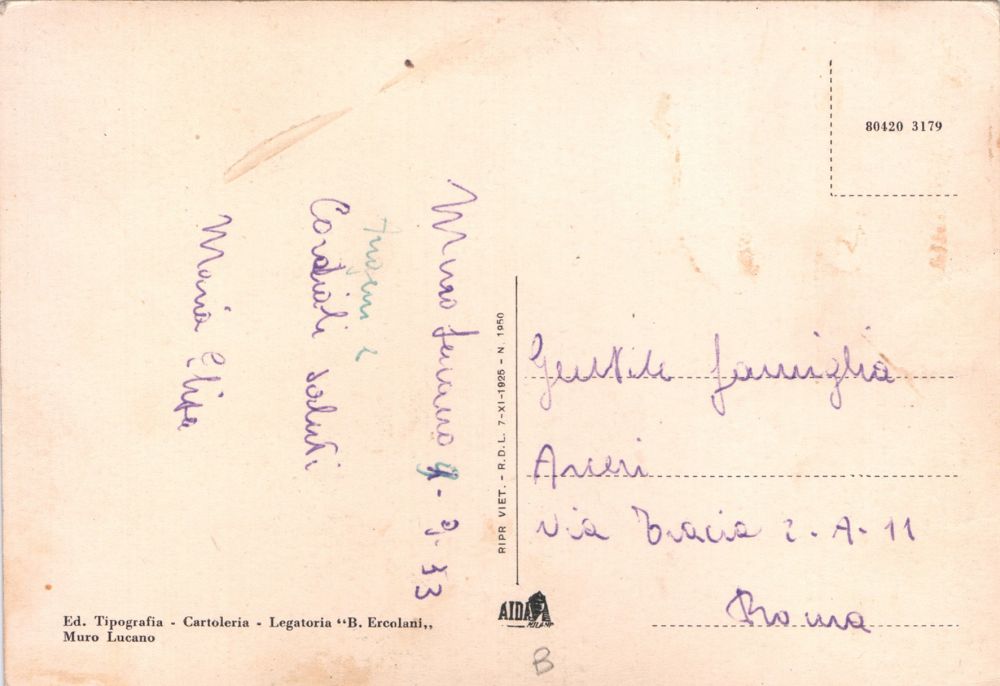 Muro Lucano 9-9-73
Auguri e
Cordiali saluti
Maria Elisa
RIPR VIET. - R.D.L. 7-XI-1925 - N. 1950
80420 3179
Gentile famiglia
Arceri
Via Tracia 2-A-11
Roma
Ed. Tipografia - Cartoleria - Legatoria “B. Ercolani„
Muro Lucano
AIDA
MILANO
B